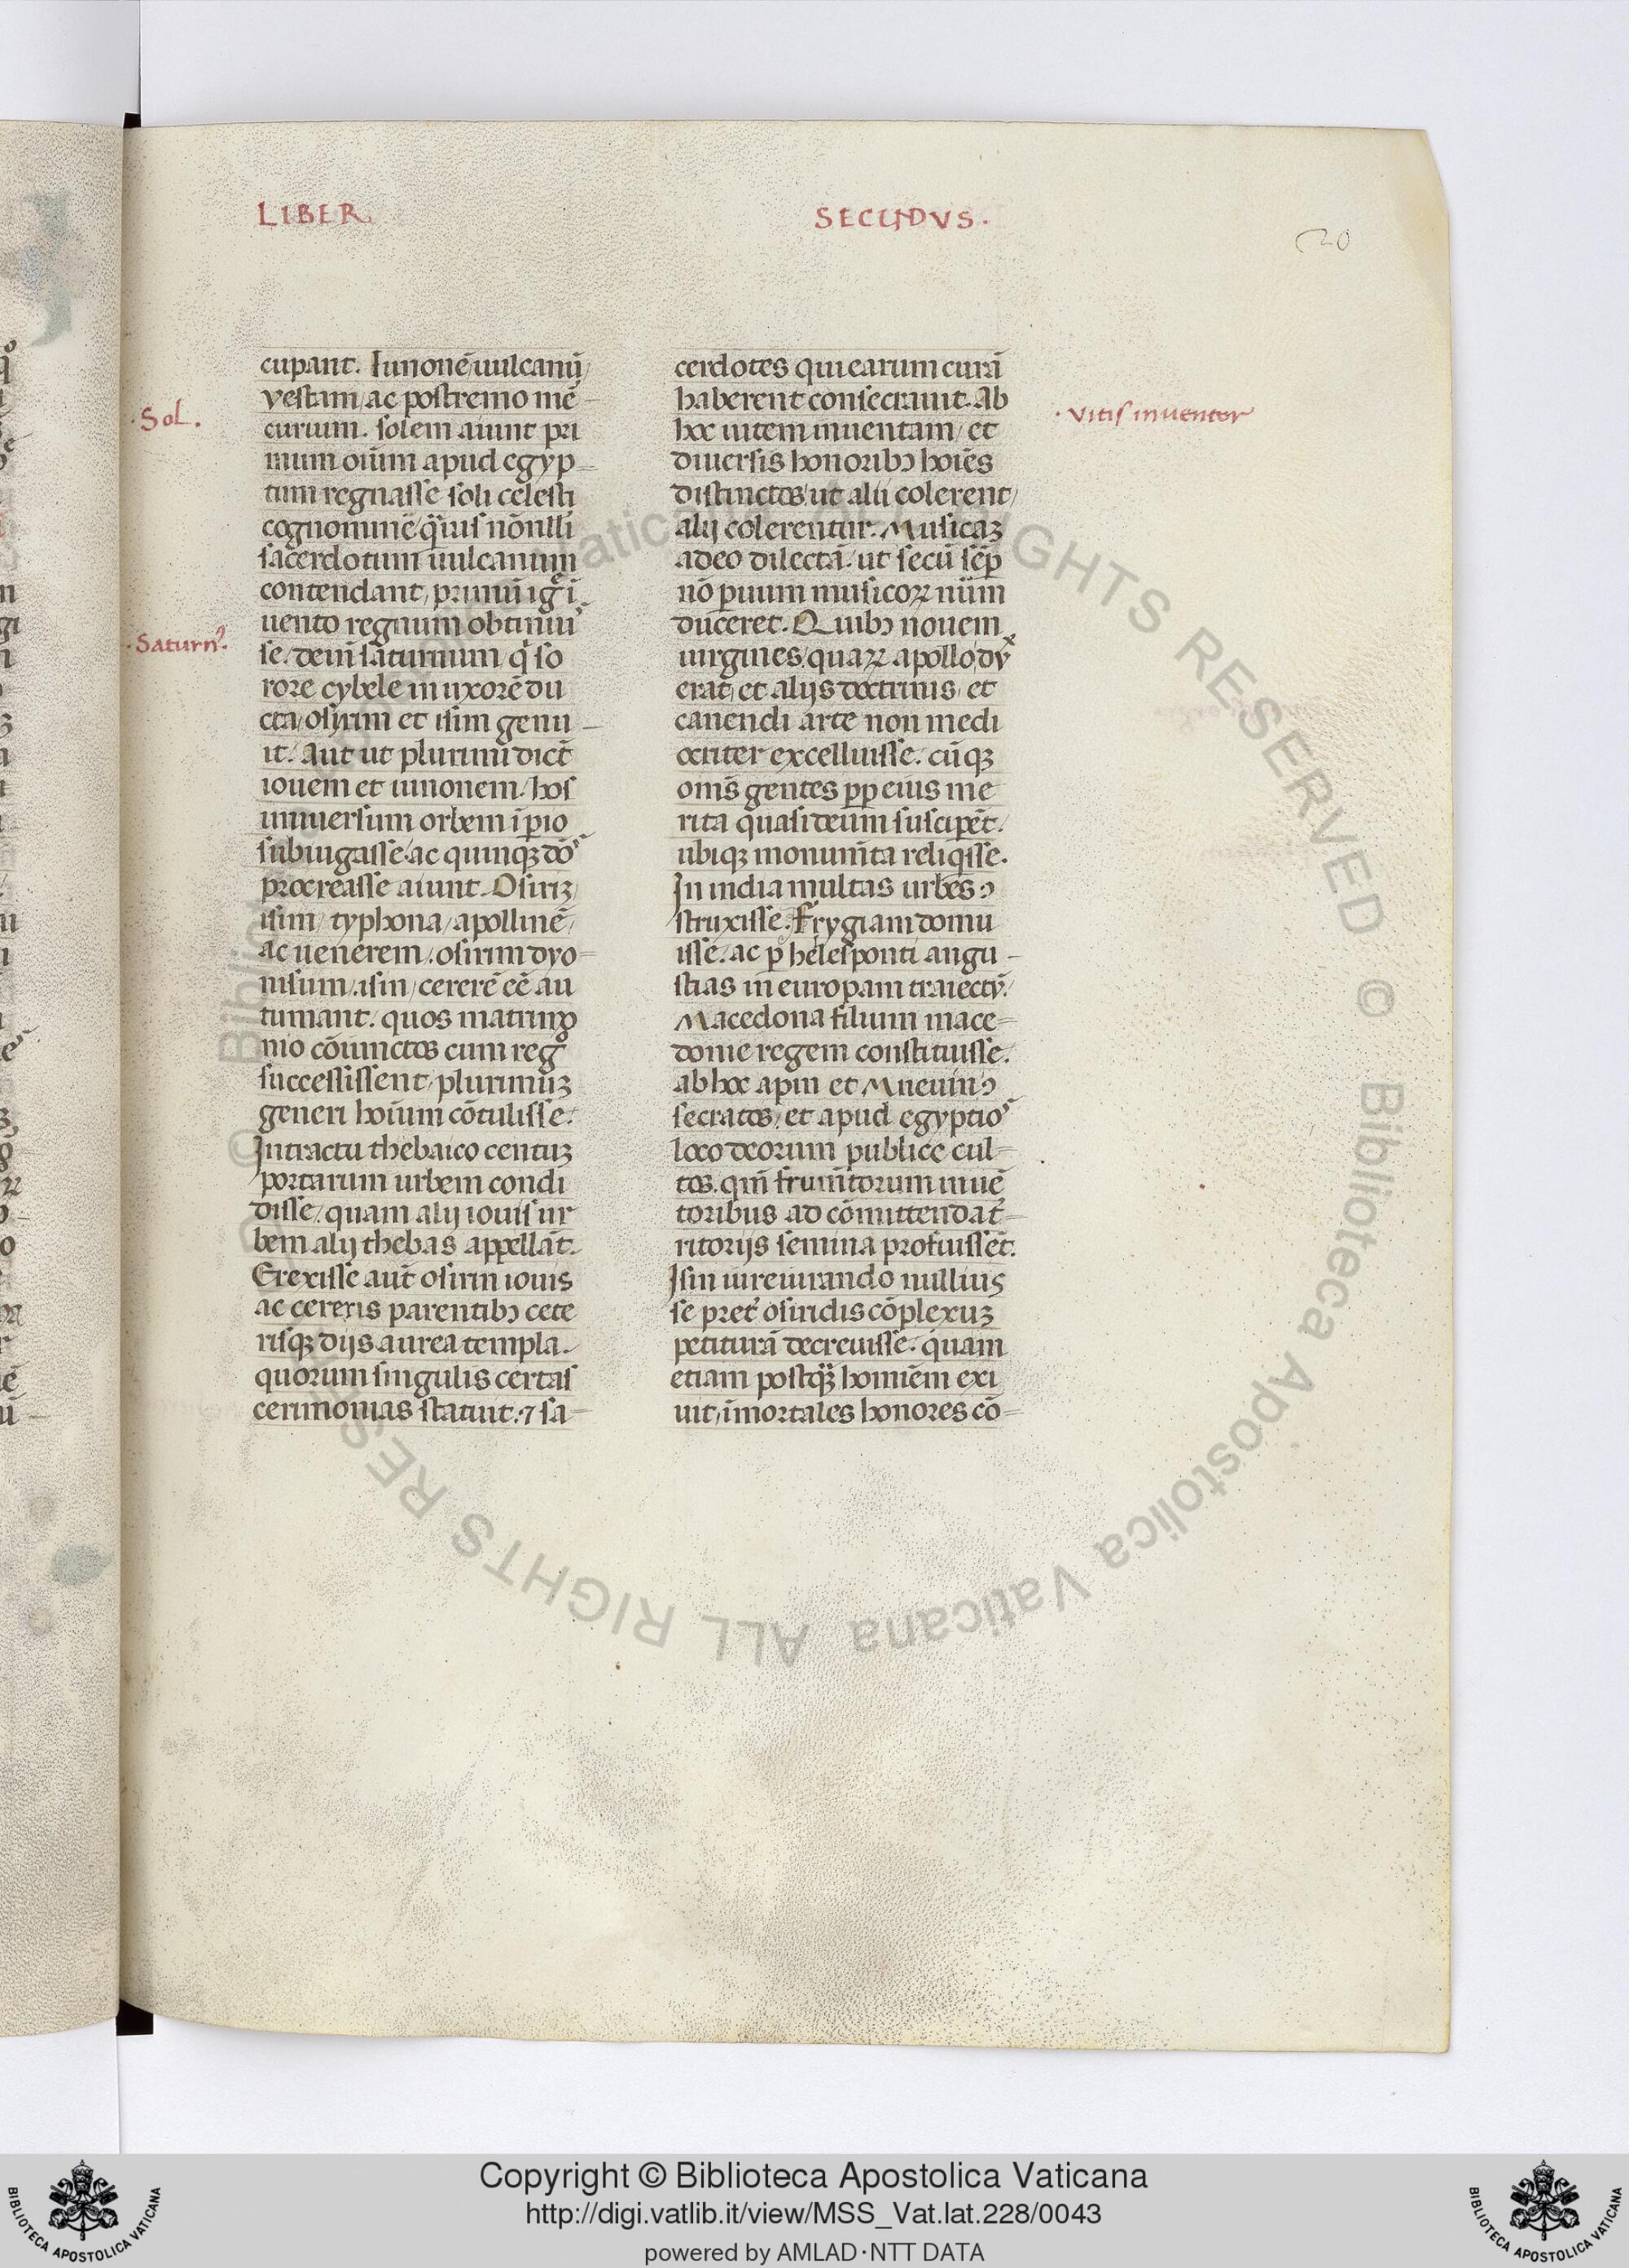 LIBER
SECUNDVS.
20
cupant. Iunonē uulcanū/
vestam/ac postremo mē-
curium. solem aiunt pri
mum oīum apud egyp=
tum regnasse soli celesti
cognomine/ q̄uis nōnulli
sacerdotum uulcanum
contendant/ primū igī ī
uento regnum obtinuis
se. dein saturnum q̇ so
rore cybele in uxorē du
cta/osyrim et isim genu-
it. Aut ut plurimū dicūt
iouem et iunonem. hos
uniuersum orbem īperio
subiugasse. ac quinqꝫ deos
procreasse aiunt. Osiriꝫ/
isim/ typhona/ apollinē/
ac uenerem. osirim dyo=
nisum. isin/ cererē eē au
tumant. quos matrimo
nio cōiunctos cum regͦ
successissent/ plurimūꝫ
generi hoīum cōtulisse.
In tractu thebaico centuꝫ
portarum urbem condi
disse. quam alij iouis ur
bem alij thebas appellāt.
Erexisse aūt osirin iouis
ac cereris parentibꝰ cete
risqꝫ dijs aurea templa.
quorum singulis certas
cerimonias statuit. ⁊ sa=
cerdotes qui earum curā
haberent consecrauit. Ab
hoc uitem inuentam/ et
diuersis honoribꝰ hoīes
distinctos. ut alii colerent/
alij colerentur. Musicaꝫ
adeo dilectā. ut secū sēꝑ
nō ꝑuum musicoꝝ nūm
duceret. Quibꝰ nouem
uirgines/ quaꝝ apollo dux
erat/ et alijs doctrinis/ et
canendi arte non medi
ocriter excelluisse. cūqꝫ
oms gentes ꝓp eius me
rita quasi deum susciꝑēt.
ubiqꝫ monumīta reliqisse.
In india multas urbes ꝯ
struxisse. Frygiam domu
isse. ac ꝑ helesponti angu-
stias in europam traiectū.
Macedona filium mace=
donie regem constituisse.
ab hoc apin et Mneuin ꝯ
secratos/ et apud egyptios
loco deorum publice cul=
tos. qm̄ frumītorum inuē
toribus ad cōmittenda t̄=
ritorijs semina profuissēt.
Isin iureiurando nullius
se pret̄ osiridis cōplexuꝫ
petiturā decreuisse. quam
etiam postqꝫ homiēm exi
uit/ īmortales honores cō=
.Sol.
.Saturnꝰ.
.Vitis inuentor
© Biblioteca Apostolica Vaticana ALL RIGHTS RESERVED
© Biblioteca Apostolica Vaticana ALL RIGHTS RESERVED
Copyright © Biblioteca Apostolica Vaticana
http://digi.vatlib.it/view/MSS_Vat.lat.228/0043
powered by AMLAD·NTT DATA
BIBLIOTECA APOSTOLICA VATICANA
BIBLIOTECA APOSTOLICA VATICANA